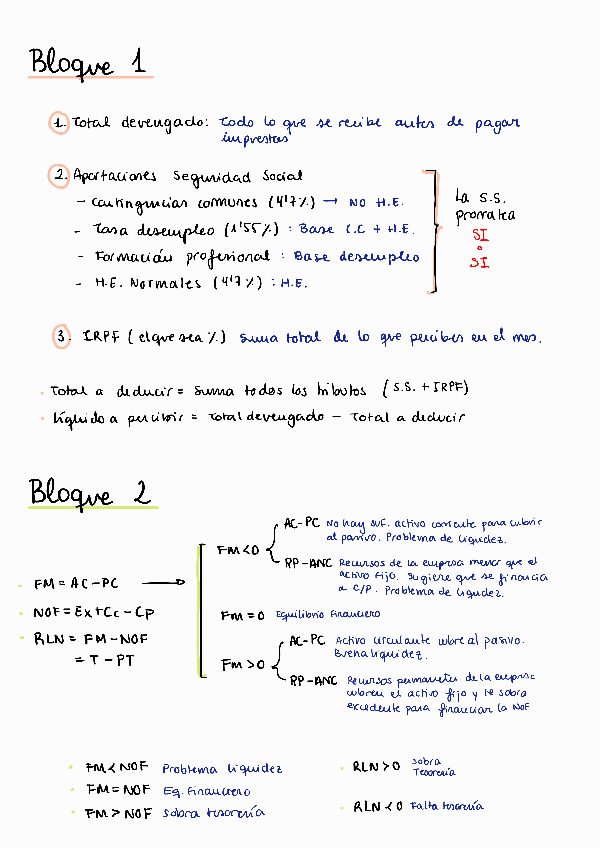 Bloque 1
1. Total devengado: Todo lo que se recibe antes de pagar
impuestos
2. Aportaciones Seguridad Social
- Contingencias comunes (4'7%) → NO H.E.
- Tasa desempleo (1'55%) : Base C.C + H.E.
- Formación profesional : Base desempleo
- H.E. Normales (4'7%) : H.E.
La S.S.
prorratea
SI
o
SI
3. IRPF (el que sea %) suma total de lo que percibes en el mes.
· Total a deducir = Suma todos los tributos (S.S. + IRPF)
· Líquido a percibir = Total devengado - Total a deducir
Bloque 2
· FM = AC - PC →
· NOF = Ex + Cc - Cp
· RLN = FM - NOF
= T - PT
FM < 0
AC-PC No hay suf. activo corriente para cubrir
al pasivo. Problema de liquidez.
RP-ANC Recursos de la empresa menor que el
activo fijo. Sugiere que se financia
a C/P. Problema de liquidez.
FM = 0 Equilibrio financiero
FM > 0
AC-PC Activo circulante cubre al pasivo.
Buena liquidez.
RP-ANC Recursos permanentes de la empresa
cubren el activo fijo y le sobra
excedente para financiar la NOF
· FM < NOF Problema liquidez
· FM = NOF Eq. Financiero
· FM > NOF Sobra tesorería
· RLN > 0 Sobra
Tesorería
· RLN < 0 Falta tesorería